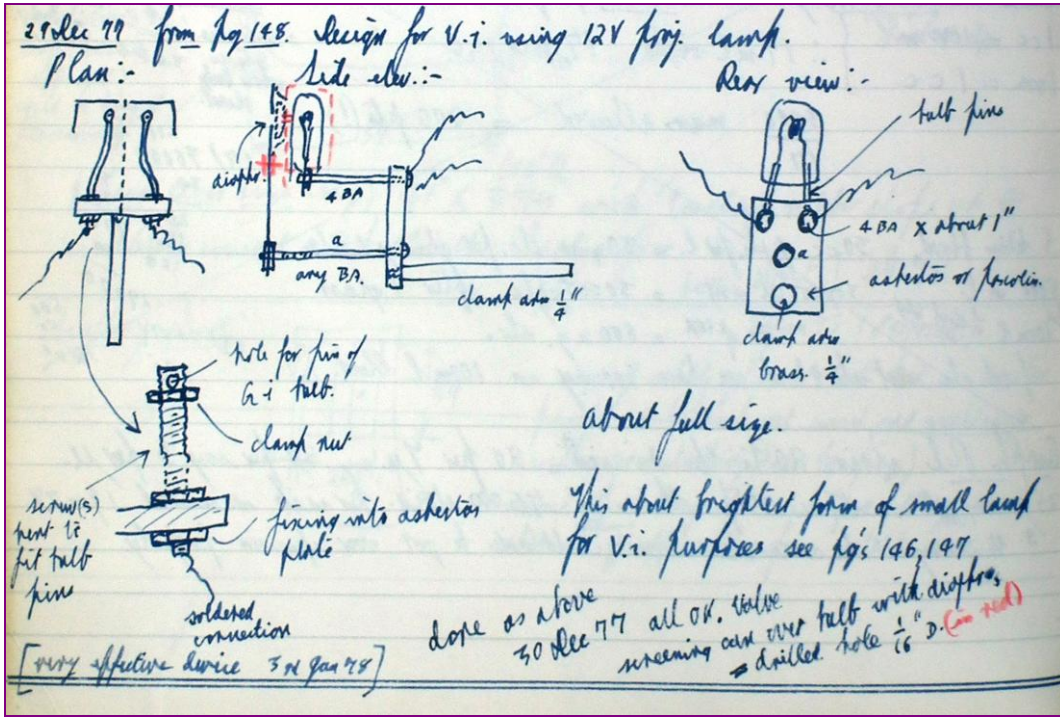 29 Dec 77 from pg. 148. Design for V.i. using 12V proj. lamp.
Plan:-
Side elev:-
Rear view:-
bulb pins
diaphr.
4 BA
a
any BA.
clamp arm 1/4"
4 BA x about 1"
a
asbestos or porcelin.
clamp arm
brass. 1/4"
hole for pin of
G-i bulb.
clamp nut
about full size.
screw(s)
bent to
fit bulb
pins
fixing into asbestos
plate
soldered
connection
This about brightest form of small lamp
for V.i. purposes see pg's 146, 147
done as above
30 Dec 77 all OK. Valve
screening can over bulb with diaphr,
= drilled hole 1/16" D. (in red)
[very effective device 3rd Jan 78]